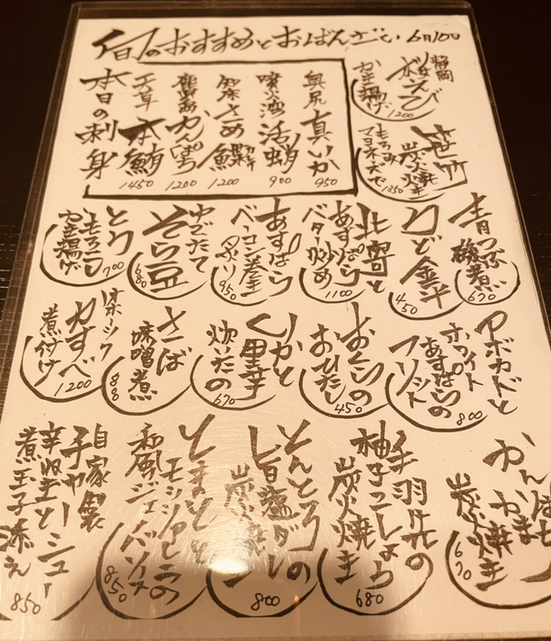 旬のおすすめとおばんざい 6月10日
本日の刺身
奥尻 真いか 950
噴火湾 活蛸 900
釧床 さめ鰈 1200
鹿児島 かんぱち 1200
天草 本鮪 1450
静岡 桜えび かき揚げ 1200
笹竹 炭火焼き もろみマヨネーズで 1350
青つぶ 磯煮 670
うど金平 450
北寄とあすぱら バター炒め 1100
あすぱら ベーコン巻き 炙り 950
ゆでたて そら豆 680
とうもろこし かき揚げ 700
アボカドと ホワイトあすぱらの フリット 800
おくらの おひたし 450
いかと 里芋 炊いたの 670
さば 味噌煮
かすべ 煮付け 1200
かんぱち かま 炭火焼き 670
手羽先の 柚子こしょう 炭火焼き 680
とんとろの 旨塩ダレ 炭火焼き 800
とまとと モッツァレラの 和風ジェノバソース 850
自家製 チャーシュー 辛ねぎと 煮玉子添え 850